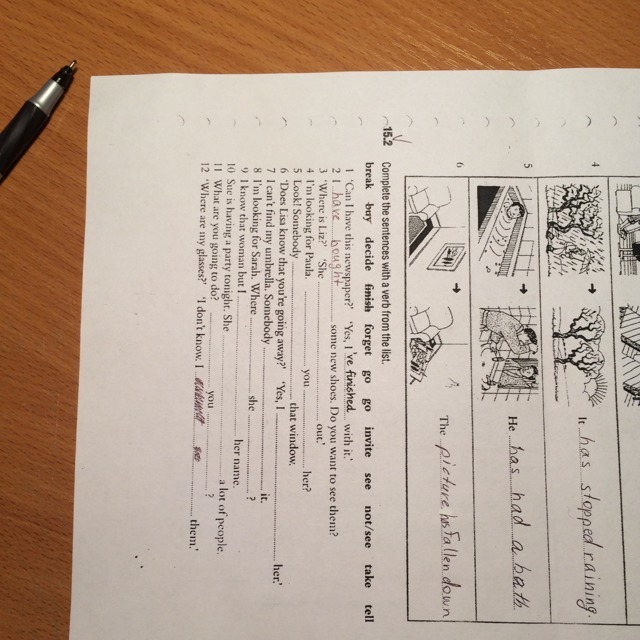 4
It has stopped raining.
5
He has had a bath.
6
The picture has fallen down
15.2 Complete the sentences with a verb from the list.
break buy decide finish forget go go invite see not/see take tell
1 'Can I have this newspaper?' 'Yes, I 've finished with it.'
2 I have bought some new shoes. Do you want to see them?
3 'Where is Liz?' 'She out.'
4 I'm looking for Paula. you her?
5 Look! Somebody that window.
6 'Does Lisa know that you're going away?' 'Yes, I her.'
7 I can't find my umbrella. Somebody it.
8 I'm looking for Sarah. Where she ?
9 I know that woman but I her name.
10 Sue is having a party tonight. She a lot of people.
11 What are you going to do? you ?
12 'Where are my glasses?' 'I don't know. I them.'